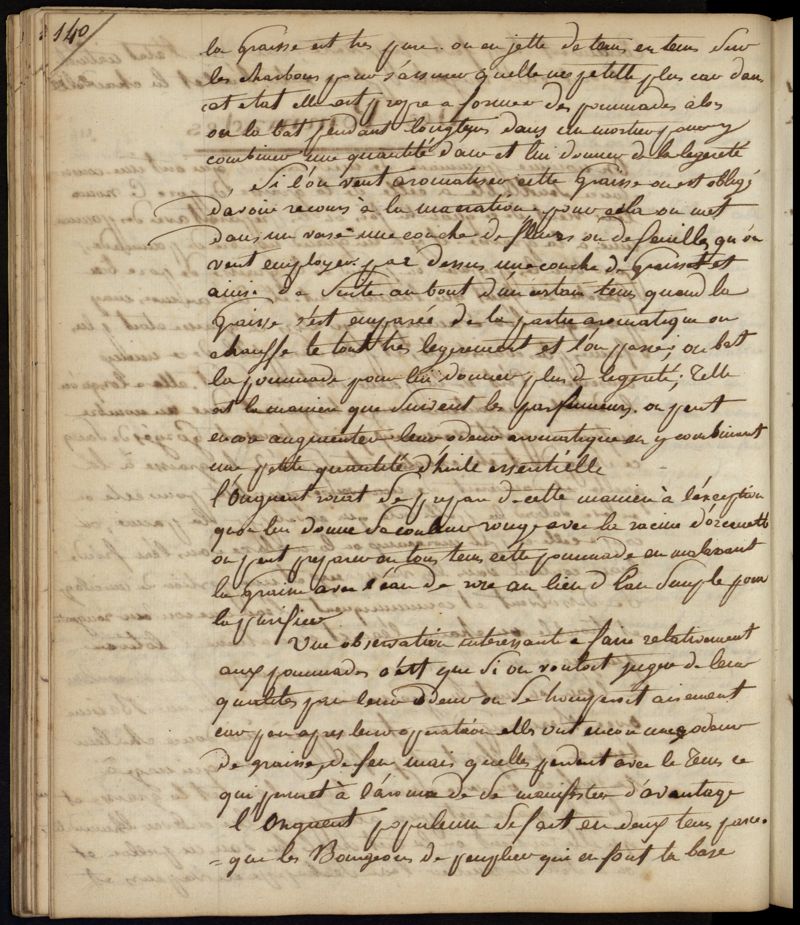 140
la Graisse est tres pure. on en jette de tems en tems sur
les charbons pour s'assurer qu'elle ne petille plus car dans
cet etat elle est propre a former des pommades alors
on la bat pendant longtems dans un mortier pour y
combiner une quantité d'air et lui donner de la legereté
Si l'on veut aromatiser cette Graisse on est obligé
d'avoir recours à la maceration. pour cela on met
dans un vase une couche de fleurs ou de feuilles qu'on
veut employer. par dessus une couche de Graisse et
ainsi de suite au bout d'un certain tems quand la
Graisse s'est emparée de la partie aromatique on
chauffe le tout tres legerement et l'on passe; on bat
la pommade pour lui donner plus de legereté; Telle
est la maniere que suivent les parfumeurs. on peut
encore augmenter leur odeur aromatique en y combinant
une petite quantité d'huile essentielle
l'Onguent rosat se prepare de cette maniere à l'exception
qu'on lui donne sa couleur rouge avec la racine d'orcanette
on peut preparer en tous tems cette pommade en malaxant
la Graisse avec l'eau de rose au lieu d'Eau simple pour
la purifier.
Une observation interessante a faire relativement
aux pommades c'est que si on vouloit juger de leur
qualités par leur odeur on se tromperoit aisement
car peu apres leur operation elles ont encore une odeur
de graisse, de feu mais qu'elles perdent avec le Tems ce
qui permet à l'arome de se manifester d'avantage
l'Onguent populeum se fait en deux tems parce-
=que les Bourgeons de peuplier qui en font la base